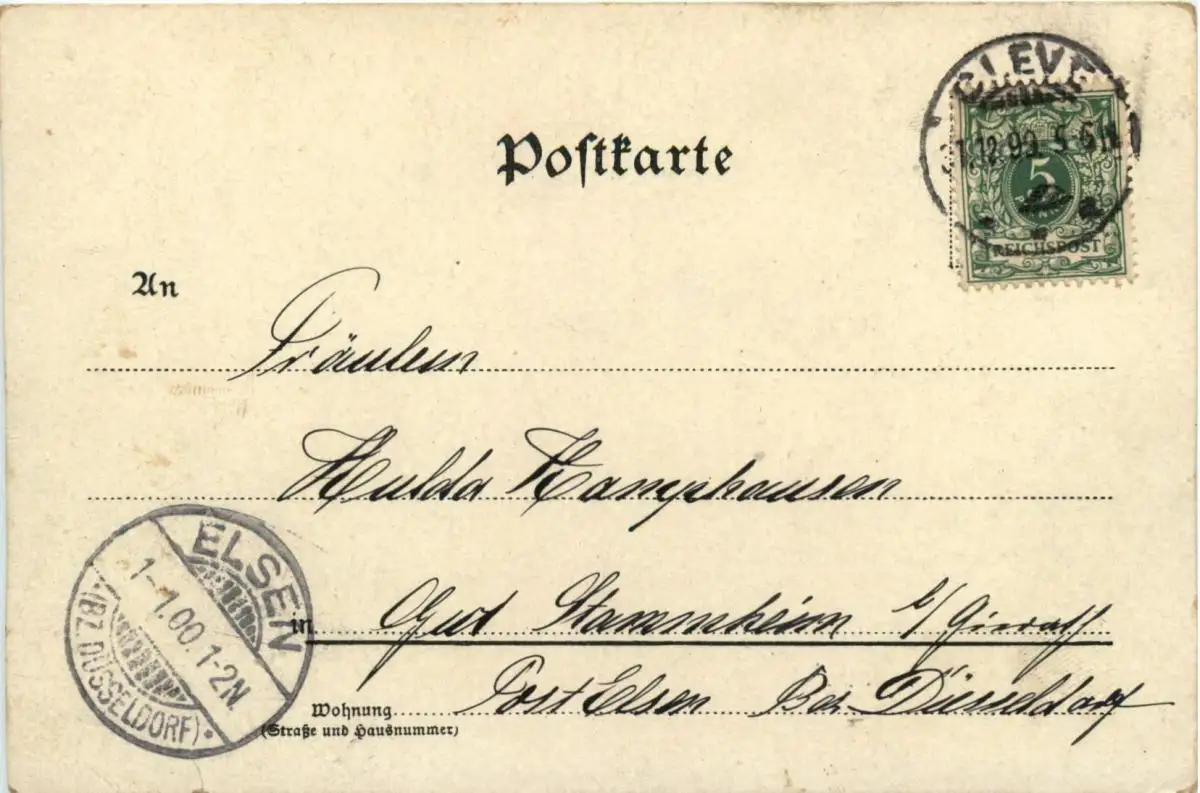 Postkarte
CLEVE
31.12.99. 5-6 N
5
REICHSPOST
An
Fräulein
Hulda Kamphausen
in Gut Stammheim b/
Post Elsen Bez. Düsseldorf
Wohnung
(Straße und Hausnummer)
ELSEN
1-1.00.1-2N
(BZ. DÜSSELDORF)